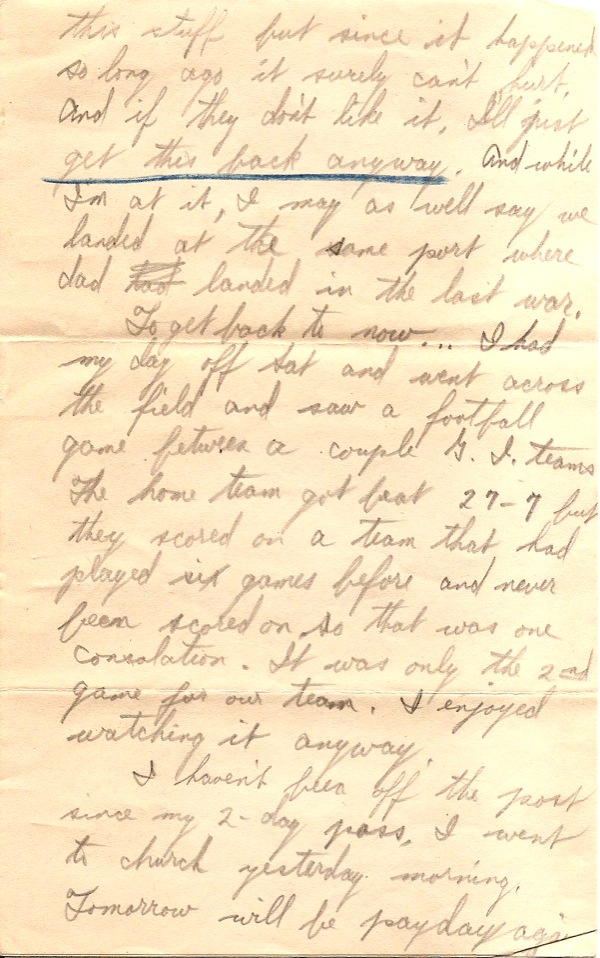 this stuff but since it happened
so long ago it surely can't hurt.
And if they don't like it, I'll just
get this back anyway. And while
I'm at it, I may as well say we
landed at the same port where
dad had landed in the last war.
To get back to now... I had
my day off Sat and went across
the field and saw a football
game between a couple G. I. teams
The home team got beat 27-7 but
they scored on a team that had
played six games before and never
been scored on so that was one
consolation. It was only the 2nd
game for our team. I enjoyed
watching it anyway.
I haven't been off the post
since my 2-day pass. I went
to church yesterday morning.
Tomorrow will be payday again